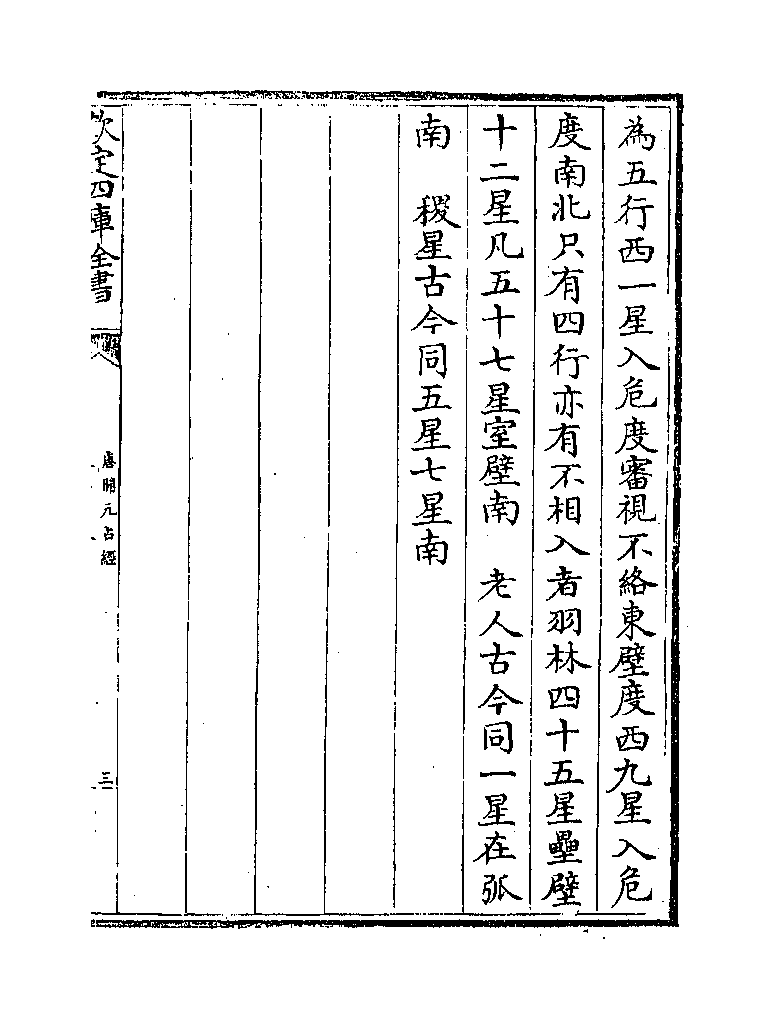 為五行西一星入危度審視不絡東壁度西九星入危
度南北只有四行亦有不相入者羽林四十五星壘壁
十二星凡五十七星室壁南　老人古今同一星在弧
南　稷星古今同五星七星南
欽定四庫全書
唐開元占經
三